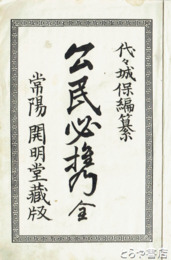 代々城保編纂
公民必携 全
常陽 開明堂蔵版
とらや書店